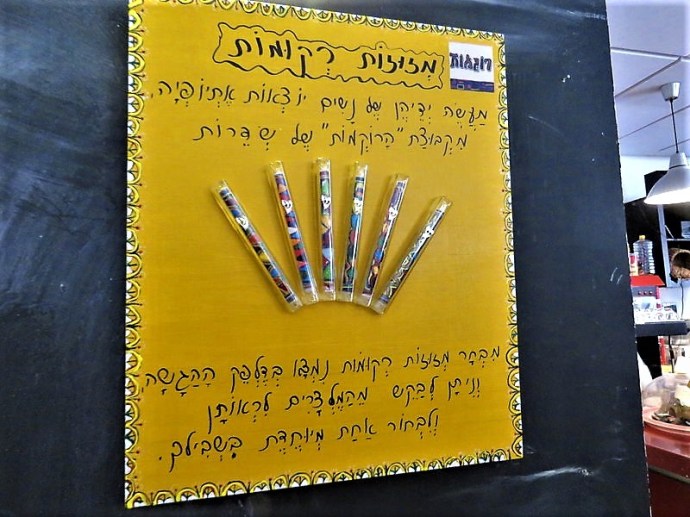 מְזוּזוֹת רְקוּמוֹת
רוֹקְמוֹת
מַעֲשֵׂה יְדֵיהֶן שֶׁל נָשִׁים יוֹצְאוֹת אֶתְיוֹפְּיָה,
מִקְּבוּצַת "הָרוֹקְמוֹת" שֶׁל שְׂדֵרוֹת
מִבְחָר מְזוּזוֹת רְקוּמוֹת נִמְצָא בְּדֶלְפֵּק הַהַגָּשָׁה,
וְנִיתָּן לְבַקֵּשׁ מֵהַמֶּלְצָרִים לִרְאוֹתָן
וְלִבְחוֹר אַחַת מְיוּחֶדֶת בִּשְׁבִילֵךְ.